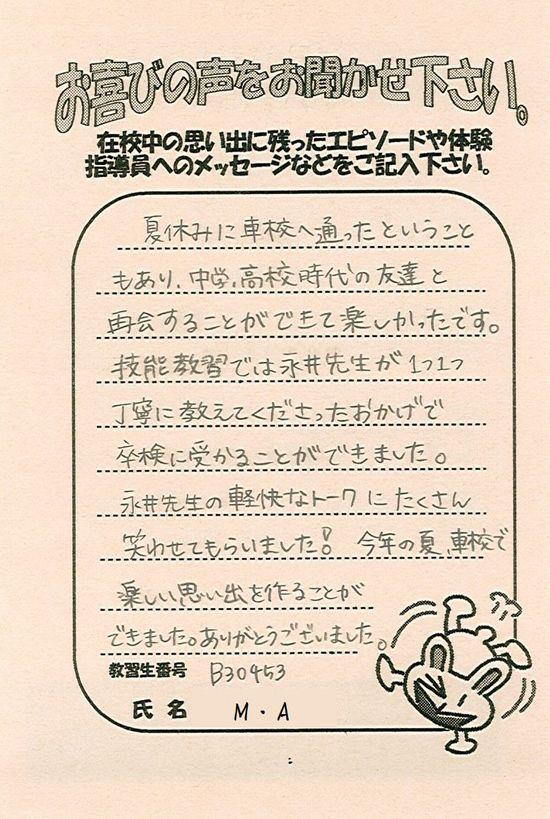 お喜びの声をお聞かせ下さい。
在校中の思い出に残ったエピソードや体験
指導員へのメッセージなどをご記入下さい。
夏休みに車校へ通ったということ
もあり、中学、高校時代の友達と
再会することができて楽しかったです。
技能教習では永井先生が1つ1つ
丁寧に教えてくださったおかげで
卒検に受かることができました。
永井先生の軽快なトークにたくさん
笑わせてもらいました! 今年の夏、車校で
楽しい思い出を作ることが
できました。ありがとうございました。
教習生番号 B30453
氏名 M・A